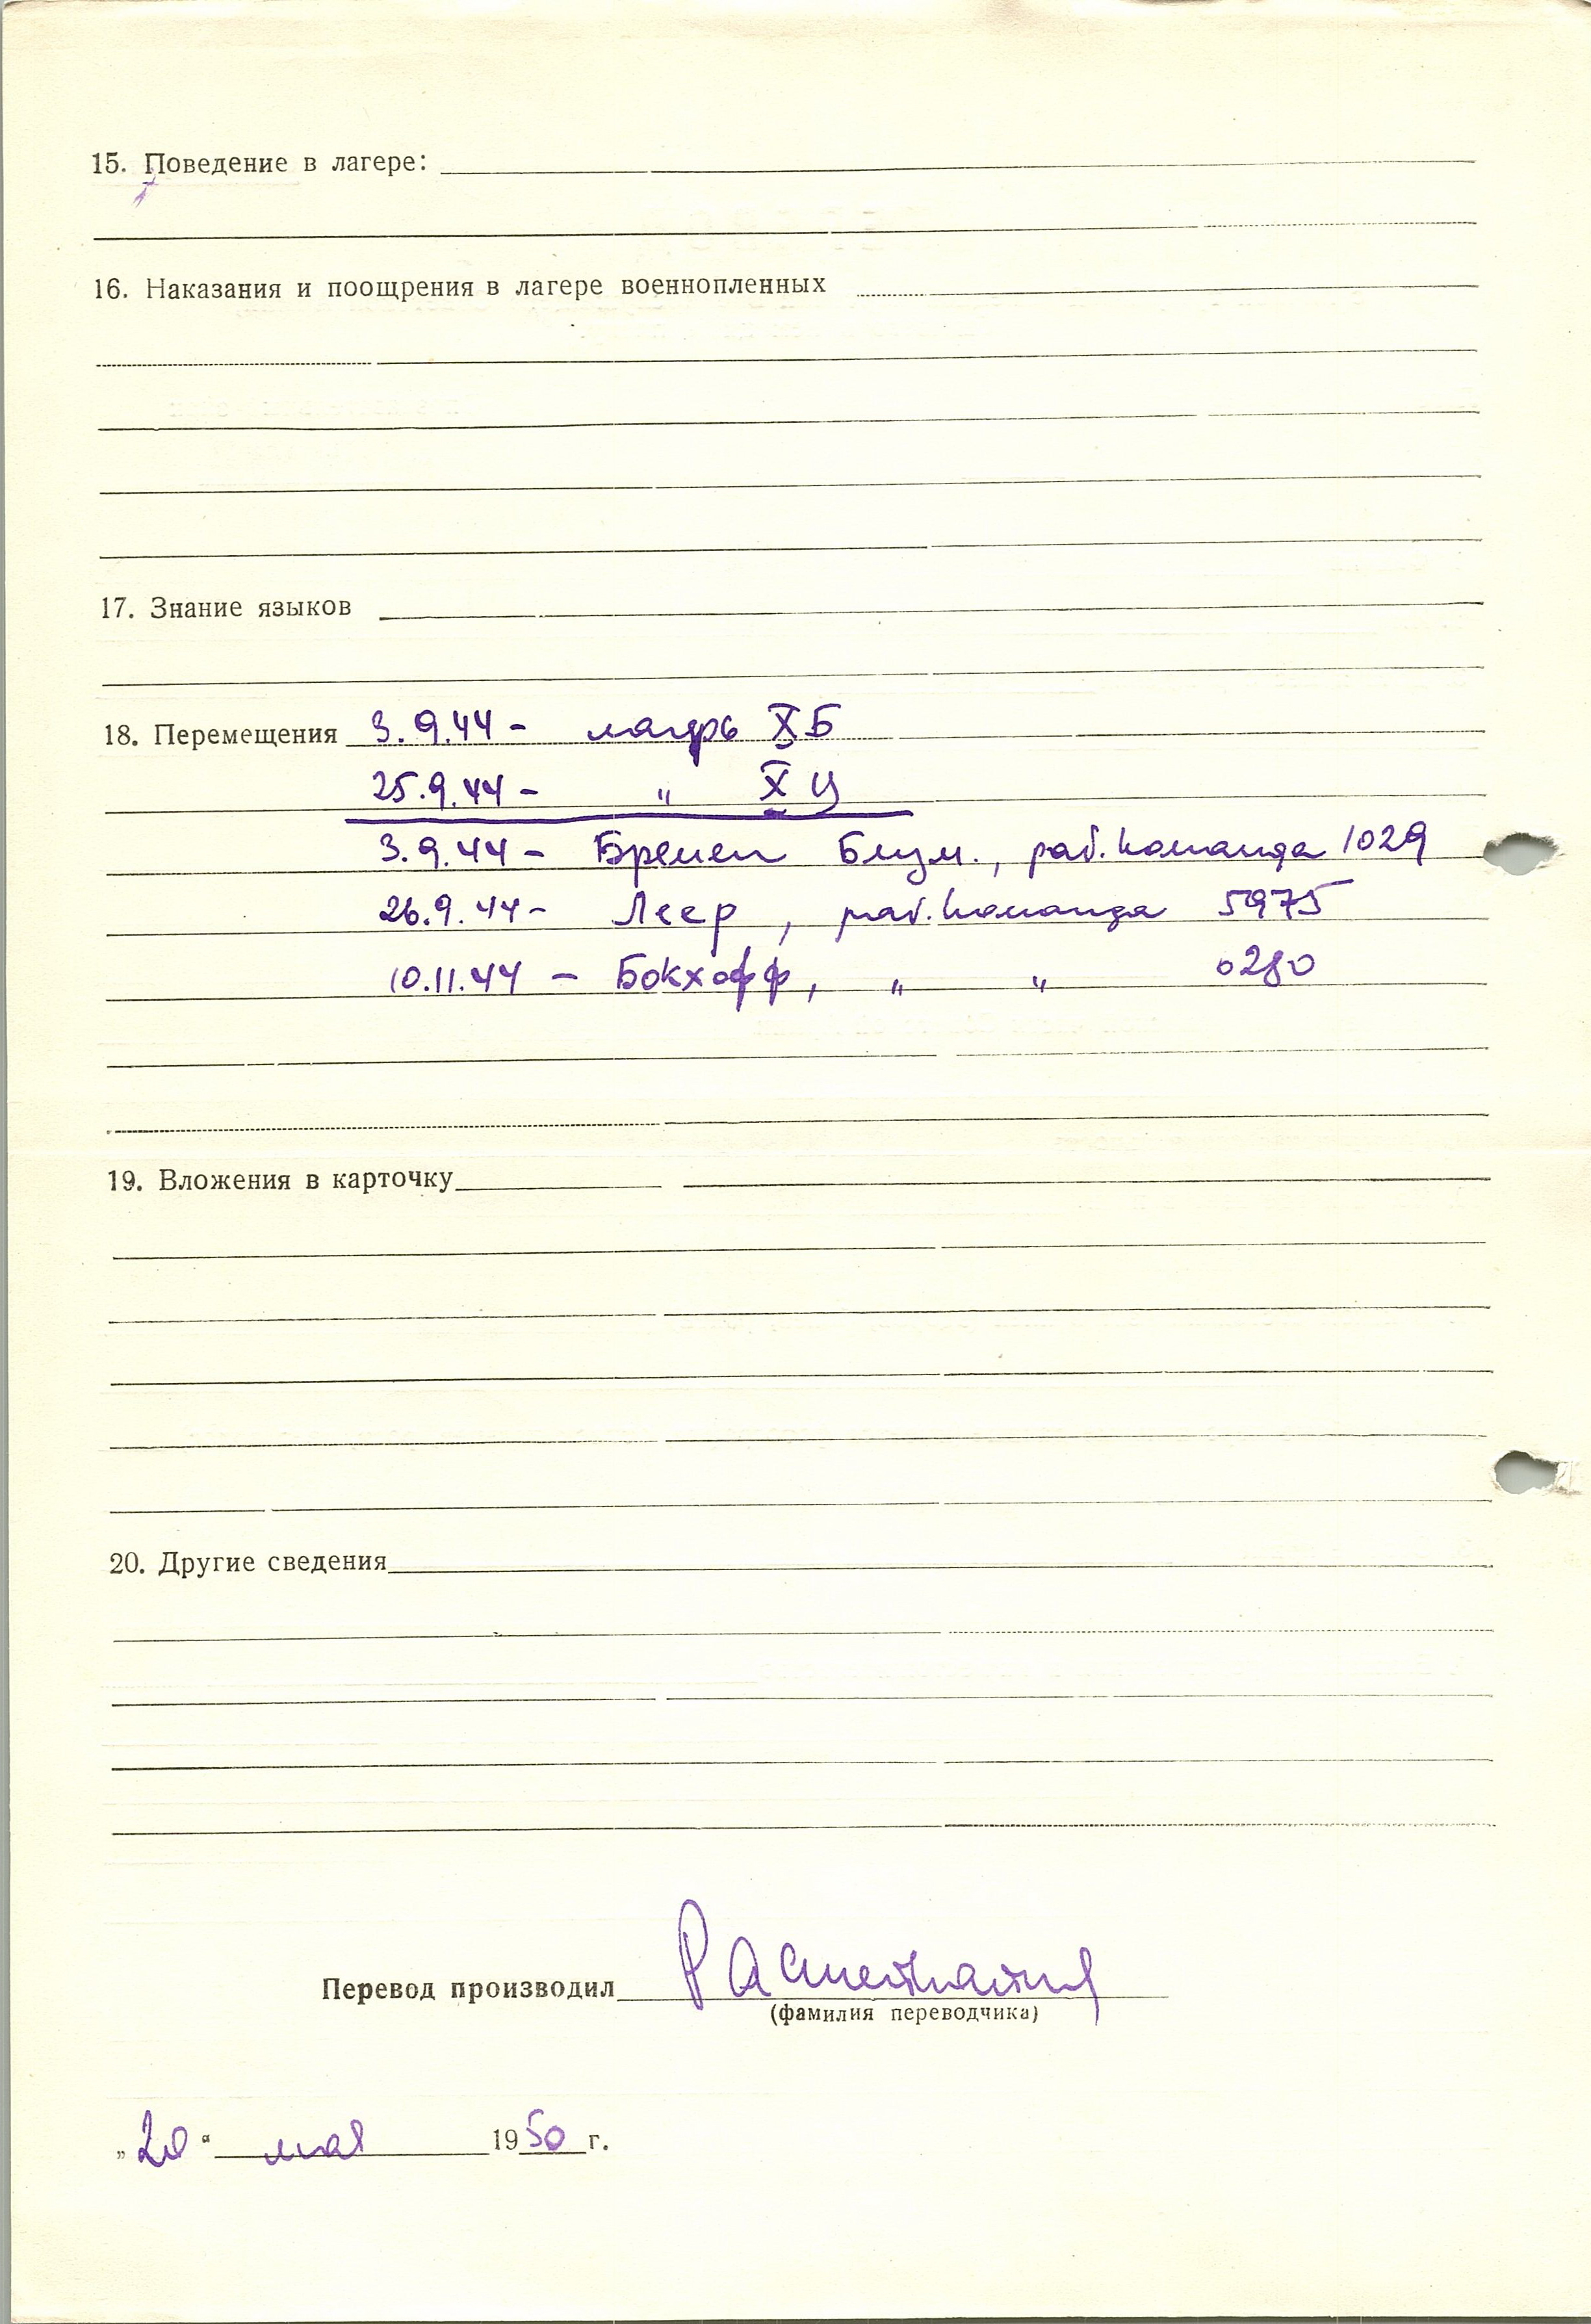 15. Поведение в лагере:
16. Наказания и поощрения в лагере военнопленных
17. Знание языков
18. Перемещения 3.9.44 - лагерь X Б
25.9.44 - " X Ц
3.9.44 - Бремен Блум., раб. команда 1029
26.9.44 - Леер, раб. команда 5975
10.11.44 - Бокхофф, " " 0280
19. Вложения в карточку
20. Другие сведения
Перевод производил
(фамилия переводчика)
„20“ мая 1950 г.